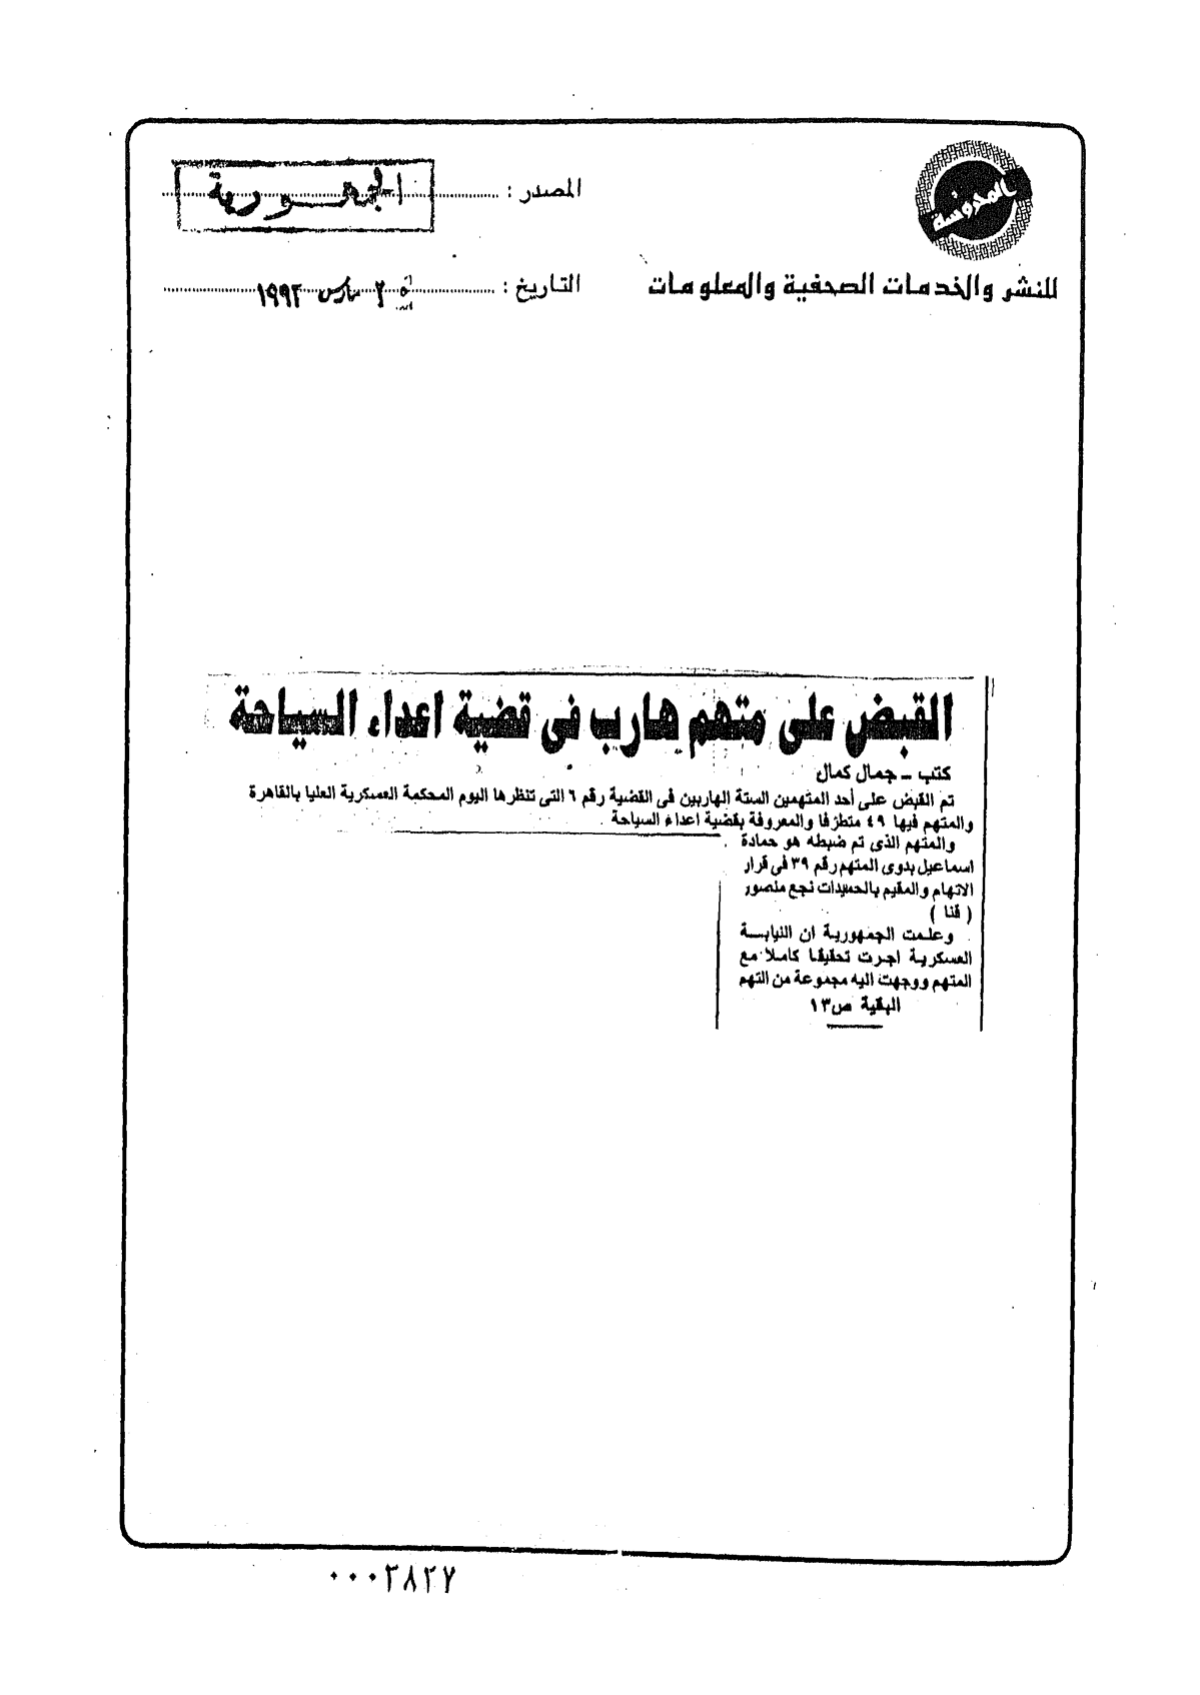 المحروسة
للنشر والخدمات الصحفية والمعلومات
المصدر : الجمهورية
التاريخ : مارس ١٩٩٣
القبض على متهم هارب فى قضية اعداء السياحة
كتب - جمال كمال
تم القبض على أحد المتهمين الستة الهاربين فى القضية رقم ٦ التى تنظرها اليوم المحكمة العسكرية العليا بالقاهرة
والمتهم فيها ٤٩ متطرفا والمعروفة بقضية اعداء السياحة .
والمتهم الذى تم ضبطه هو حمادة
اسماعيل بدوى المتهم رقم ٣٩ فى قرار
الاتهام والمقيم بالحميدات نجع منصور
( قنا )
وعلمت الجمهورية ان النيابة
العسكرية اجرت تحقيقا كاملا مع
المتهم ووجهت اليه مجموعة من التهم
البقية ص١٣
٠٠٠٣٨٢٧